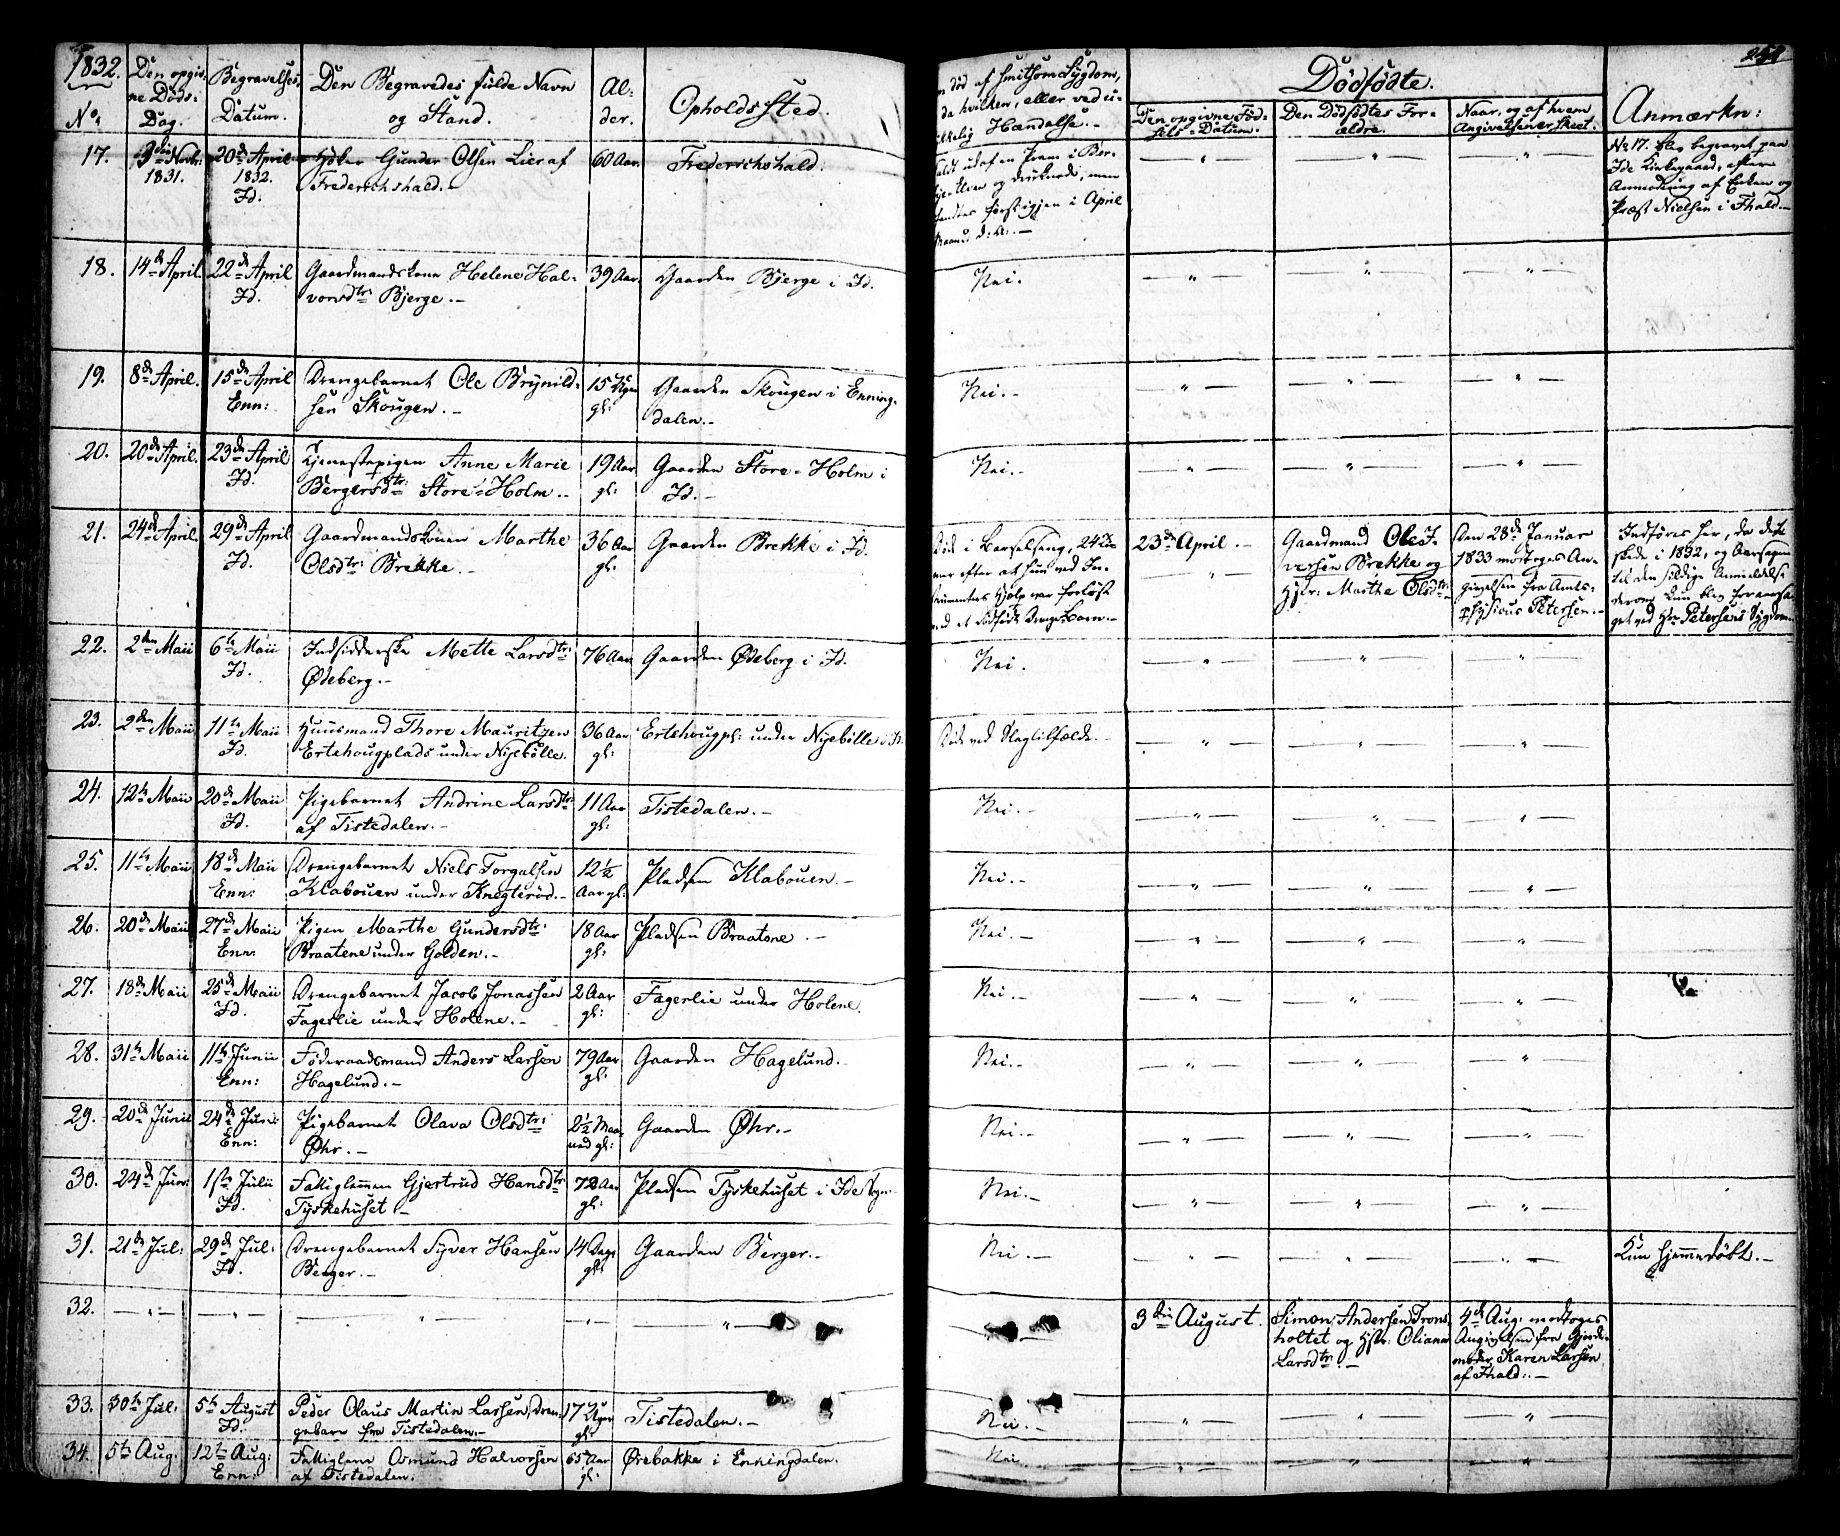 1832.
No.
Den opgiv-
ne Døds-
Dag.
Begravelses
Datum.
Den Begravedes fulde Navn
og Stand.
Al-
der.
Opholdssted.
død af smitsom Sygdom,
da hvilken, eller ved u-
lykkelig Hændelse.
Dødfødte.
Den opgivne Fød-
sels-Datum.
Den Dødfødtes For-
ældre.
Naar, og af hvem
Angivelsen er skeet.
Anmærkn:
17. Novbr: 1831. 20de April 1832. Id.
Gunder Olsen Lier af
Frederichshald.
60 Aar.
Frederichshald.
faldt ud af en Pram i
og druknede, men
først igjen i April
Maaned d: A:
No 17. blev begravet paa
Ide Kirkegaard, efter
Anmodning af Enken og
Præst Nielsen i Fhald.
18. 14de April. 22de April Id.
Gaardmandskone Helene Hal-
vorsdtr: Bjerge.
39 Aar.
Gaarden Bjerge i Id.
Nei.
19. 8de April. 15de April Enn:
Drengebarnet Ole Brynild-
sen Skougen.
15 Uger gl:
Gaarden Skougen i Enning-
dalen.
Nei.
20. 20de April. 23de April Id.
Tjenestepigen Anne Marie
Bergersdtr: Store-Holm.
19 Aar gl:
Gaarden Store-Holm i
Id.
Nei.
21. 24de April. 29de April Id.
Gaardmandskonen Marthe
Olsdtr: Brekke.
36 Aar gl:
Gaarden Brekke i Id.
Død i Barselseng, 24
efter at hun ved In-
strumenters Hjelp var forløst
med et Dødfødt Drenge-Barn.
23de April.
Gaardmand Ole I-
versen Brekke og
Hstr: Marthe Olsdtr:
Den 28de Januar
1833 modtoges An-
givelsen fra Amts-
physicus Petersen.
Indføres her, da det
skede i 1832, og Aarsagen
til den sildige Anmeldelse
derom kun blev foraarsa-
get ved Hr Petersens Sygdom.
22. 2den Maii 6te Maii Id.
Indsidderske Mette Larsdtr:
Ødeberg.
76 Aar
Gaarden Ødeberg i Id.
Nei.
23. 2den Maii 11te Maii Id.
Huusmand Thore Mauritzen
Ertehougplads under Nyebølle.
36 Aar gl:
Ertehougpl: under Nyebølle i Id.
Død ved Slagtilfælde.
24. 12te Maii 20de Maii Id.
Pigebarnet Andrine Larsdtr:
af Tistedalen.
11 Aar gl:
Tistedalen.
Nei.
25. 11te Maii 18de Maii Enn:
Drengebarnet Niels Torgalsen
Klabouen under Kneglerød.
12½ Aar gl:
Pladsen Klabouen.
Nei.
26. 20de Maii 27de Maii Enn:
Pigen Marthe Gundersdtr:
Braatene under Golden.
18 Aar gl:
Pladsen Braatene.
Nei.
27. 18de Maii 25de Maii Id.
Drengebarnet Jacob Jonassen
Fagerlie under Holene.
2 Aar gl:
Fagerlie under Holene.
Nei.
28. 31te Maii 11te Junii Enn:
Føderaadsmand Anders Larsen
Hagelund.
79 Aar gl:
Gaarden Hagelund.
Nei.
29. 20de Junii 24de Jun: Enn:
Pigebarnet Olava Olsdtr:
Øhr.
2½ Maa-
ned gl:
Gaarden Øhr.
Nei.
30. 24de Jun: 1ste Julii Id.
Fattiglemmen Gjertrud Hansdtr
Tyskehuset
72 Aar gl:
Pladsen Tyskehuset i Ide Sogn.
Nei.
31. 21de Jul: 29de Jul: Id.
Drengebarnet Syver Hansen
Berger.
14 Dage gl:
Gaarden Berger.
Nei.
Kun hjemmedøbt.
32.
3die August.
Simon Andersen Trons-
holtet og Hstr: Oliana
Larsdtr:
4de Aug: modtoges
Angivelsen fra Gjorde-
moder Karen Larsen
af Fhald:
33. 30te Jul: 5te August Id.
Peder Olaus Martin Larsen, Dren-
gebarn fra Tistedalen.
17 Uger gl:
Tistedalen.
Nei.
34. 5te Aug: 12te Aug: Enn:
Fattiglem Asmund Halvorsen
af Tistedalen.
65 Aar gl:
Ørebakke i Enningdalen.
Nei.